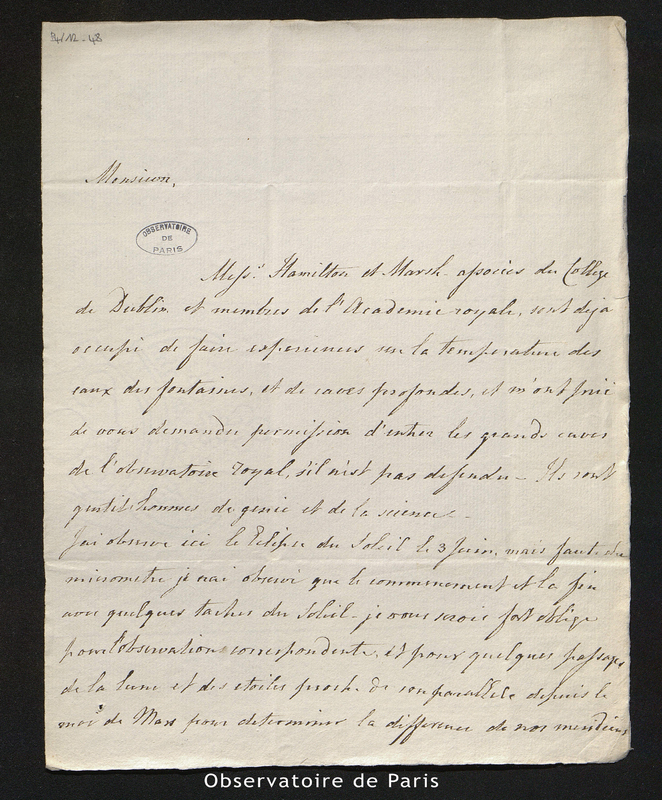 94/12-48
Monsieur,
OBSERVATOIRE
DE
PARIS
Messrs Hamilton et Marsh associes du College
de Dublin et membres de l'Academie royale, sont deja
occupé de faire experiences sur la temperature des
eaux des fontaines, et de caves profondes, et m'ont prié
de vous demander permission d'entrer les grands caves
de l'observatoire royal, s'il n'est pas defendu - Ils sont
gentilshommes de genie et de la science -
J'ai observé ici le Eclipse du Soleil le 3 Juin, mais faute de
micrometre je n'ai observé que le commencement et la fin
avec quelques taches du Soleil - je vous serois fort oblige
pour l'observation correspondente, et pour quelques passages
de la lune et des etoiles proche de son parallele depuis le
mois de Mars pour determiner la difference de nos meridiens
Observatoire de Paris